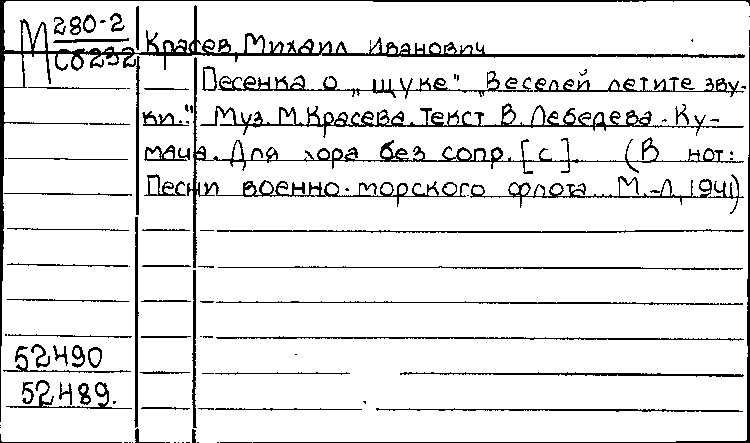 М 280-2
Сб232
Красев, Михаил Иванович
Песенка о „щуке" „Веселей летите зву-
ки." Муз. М. Красева. Текст В. Лебедева-Ку-
мача. Для хора без сопр. [с]. (В нот:
Песни военно-морского флота. М.-Л, 1941)
52490
52489.